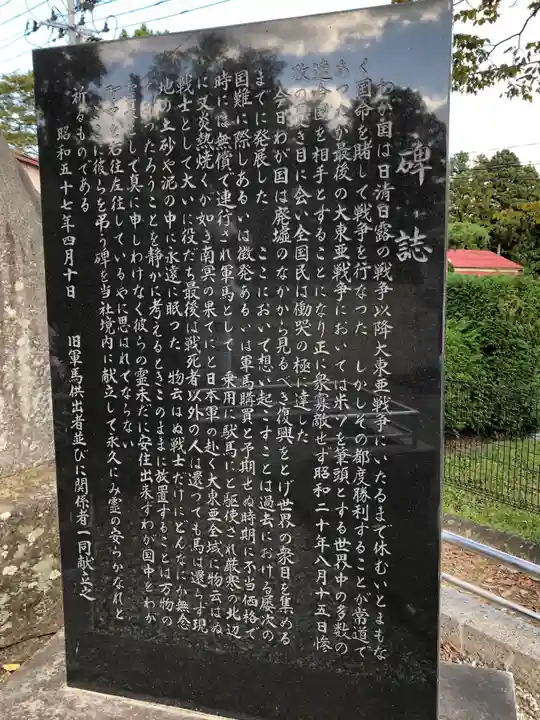 碑誌
わが国は日清日露の戦争以降大東亜戦争にいたるまで休むいとまもな
く国命を賭して戦争を行なつた しかしその都度勝利することが常道で
あつたが最後の大東亜戦争においては米ソを筆頭とする世界中の多数の
連合国を相手とすることになり正に衆寡敵せず昭和二十年八月十五日惨
敗の憂き目に会い全国民は慟哭の極に達した
今日わが国は廃墟のなかから見るべき復興をとげ世界の衆目を集める
までに発展した ここにおいて想い起こすことは過去における屡次の
国難に際しあるいは徴発あるいは軍馬購買と予期せぬ時期に不当価格で
時には無償で連行され軍馬として 乗用に駄馬にと駆使され厳寒の北辺
に又炎熱焼くが如き南冥の果てにと日本軍の赴く大東亜全域に物云はぬ
戦士として大いに役だち最後は戦死者以外の人は還つても馬は還らず現
地の土砂や泥の中に永遠に眠つた 物云はぬ戦士だけにどんなにか無念
であつたろうことを静かに考えるときこのままに放置することは万物の
として真に申しわけなく彼らの霊未だに安住出来ずわが国中をわか
を右往左往しているやに思はれてならない
に彼らを弔う碑を当社境内に献立して永久にみ霊の安らかなれと
祈るものである
昭和五十七年四月十日 旧軍馬供出者並びに関係者一同献立之